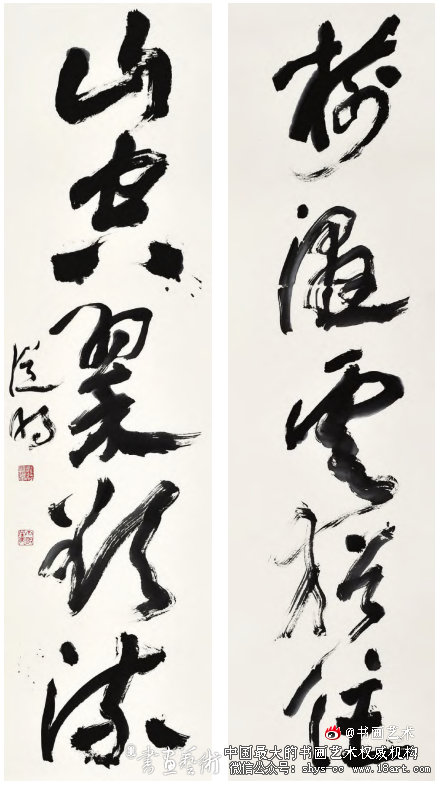 樹濕雲猶住
山空翠欲流
@书画艺术
書畫藝術
中国最大的书画艺术权威机构
微信公众号: shys-cc www.18art.com